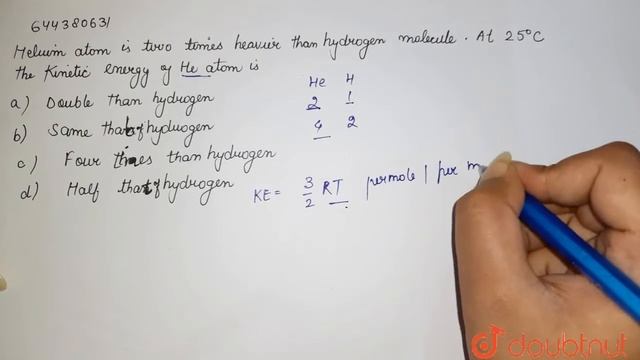 644380631
Helium atom is two times heavier than hydrogen molecule. At 25°C
the Kinetic energy of He atom is
a) Double than hydrogen
b) Same that of hydrogen
c) Four times than hydrogen
d) Half that of hydrogen
He H
2 1
4 2
KE = 3/2 RT per mole | per m
doubtnut